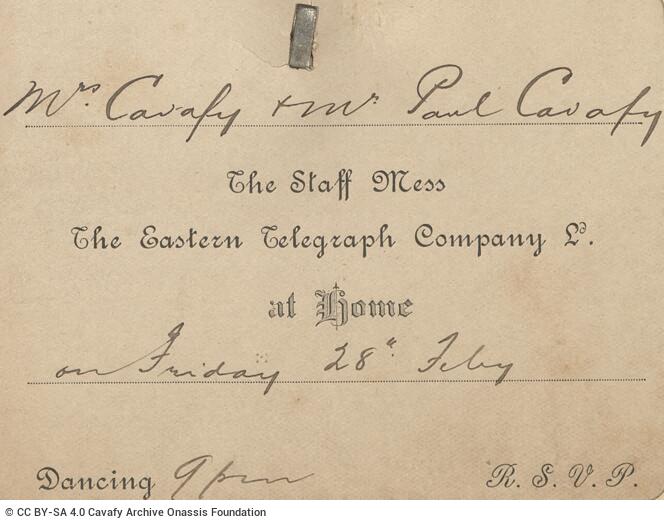 Mrs. Cavafy & Mr. Paul Cavafy
The Staff Mess
The Eastern Telegraph Company Ld.
at Home
on Friday 28th Feby
Dancing 9 pm R. S. V. P.
© CC BY-SA 4.0 Cavafy Archive Onassis Foundation